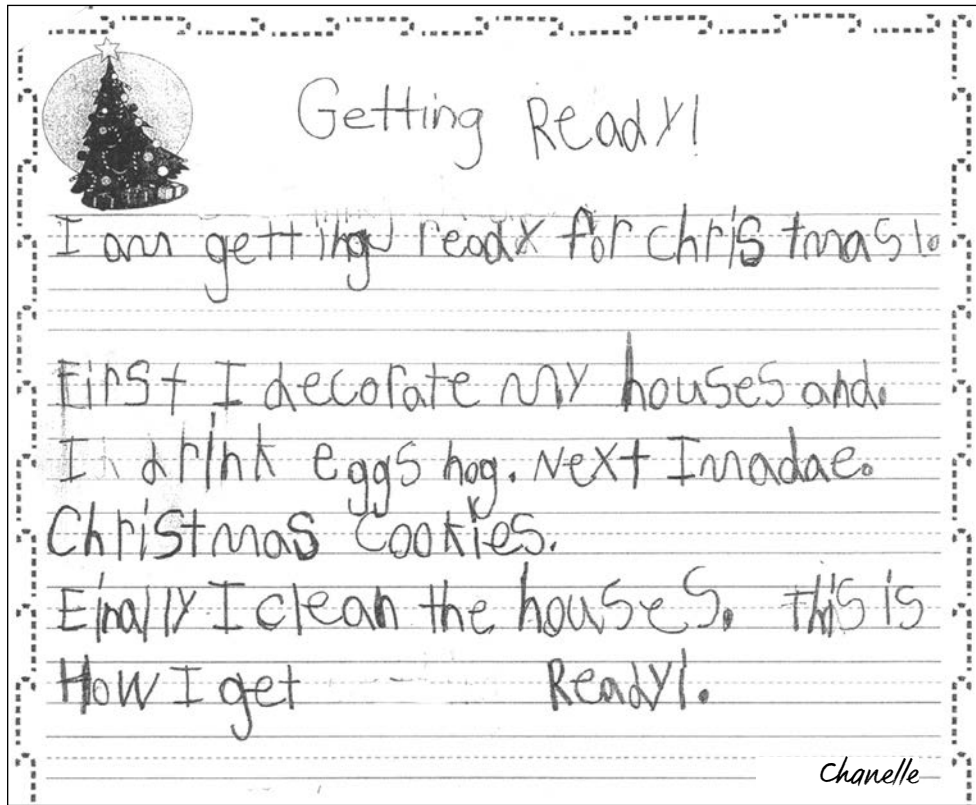 Getting Ready!
I am getting ready for christmas!.
First I decorate my houses and.
I drink eggs nog. Next I madae.
Christmas Cookies.
Finally I clean the houses. this is
How I get Ready!.
Chanelle